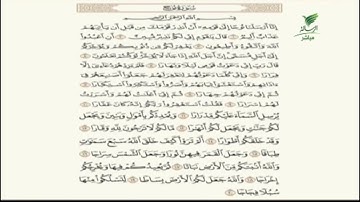 مباشر
سُورَةُ نُوحٍ
بِسْمِ اللَّهِ الرَّحْمَٰنِ الرَّحِيمِ
إِنَّا أَرْسَلْنَا نُوحًا إِلَىٰ قَوْمِهِ أَنْ أَنذِرْ قَوْمَكَ مِن قَبْلِ أَن يَأْتِيَهُمْ
عَذَابٌ أَلِيمٌ ۝ قَالَ يَٰقَوْمِ إِنِّي لَكُمْ نَذِيرٌ مُّبِينٌ ۝ أَنِ اعْبُدُوا
اللَّهَ وَاتَّقُوهُ وَأَطِيعُونِ ۝ يَغْفِرْ لَكُم مِّن ذُنُوبِكُمْ وَيُؤَخِّرْكُمْ
إِلَىٰ أَجَلٍ مُّسَمًّى إِنَّ أَجَلَ اللَّهِ إِذَا جَاءَ لَا يُؤَخَّرُ لَوْ كُنتُمْ تَعْلَمُونَ ۝
قَالَ رَبِّ إِنِّي دَعَوْتُ قَوْمِي لَيْلًا وَنَهَارًا ۝ فَلَمْ يَزِدْهُمْ دُعَاءِي إِلَّا
فِرَارًا ۝ وَإِنِّي كُلَّمَا دَعَوْتُهُمْ لِتَغْفِرَ لَهُمْ جَعَلُوا أَصَٰبِعَهُمْ فِي
ءَاذَانِهِمْ وَاسْتَغْشَوْا ثِيَابَهُمْ وَأَصَرُّوا وَاسْتَكْبَرُوا اسْتِكْبَارًا ۝
ثُمَّ إِنِّي دَعَوْتُهُمْ جِهَارًا ۝ ثُمَّ إِنِّي أَعْلَنتُ لَهُمْ وَأَسْرَرْتُ
لَهُمْ إِسْرَارًا ۝ فَقُلْتُ اسْتَغْفِرُوا رَبَّكُمْ إِنَّهُ كَانَ غَفَّارًا ۝
يُرْسِلِ السَّمَاءَ عَلَيْكُم مِّدْرَارًا ۝ وَيُمْدِدْكُم بِأَمْوَٰلٍ وَبَنِينَ وَيَجْعَل
لَّكُمْ جَنَّٰتٍ وَيَجْعَل لَّكُمْ أَنْهَٰرًا ۝ مَّا لَكُمْ لَا تَرْجُونَ لِلَّهِ وَقَارًا ۝
وَقَدْ خَلَقَكُمْ أَطْوَارًا ۝ أَلَمْ تَرَوْا كَيْفَ خَلَقَ اللَّهُ سَبْعَ سَمَٰوَٰتٍ
طِبَاقًا ۝ وَجَعَلَ الْقَمَرَ فِيهِنَّ نُورًا وَجَعَلَ الشَّمْسَ سِرَاجًا ۝
وَاللَّهُ أَنبَتَكُم مِّنَ الْأَرْضِ نَبَاتًا ۝ ثُمَّ يُعِيدُكُمْ فِيهَا وَيُخْرِجُكُمْ
إِخْرَاجًا ۝ وَاللَّهُ جَعَلَ لَكُمُ الْأَرْضَ بِسَاطًا ۝ لِّتَسْلُكُوا مِنْهَا
سُبُلًا فِجَاجًا ۝